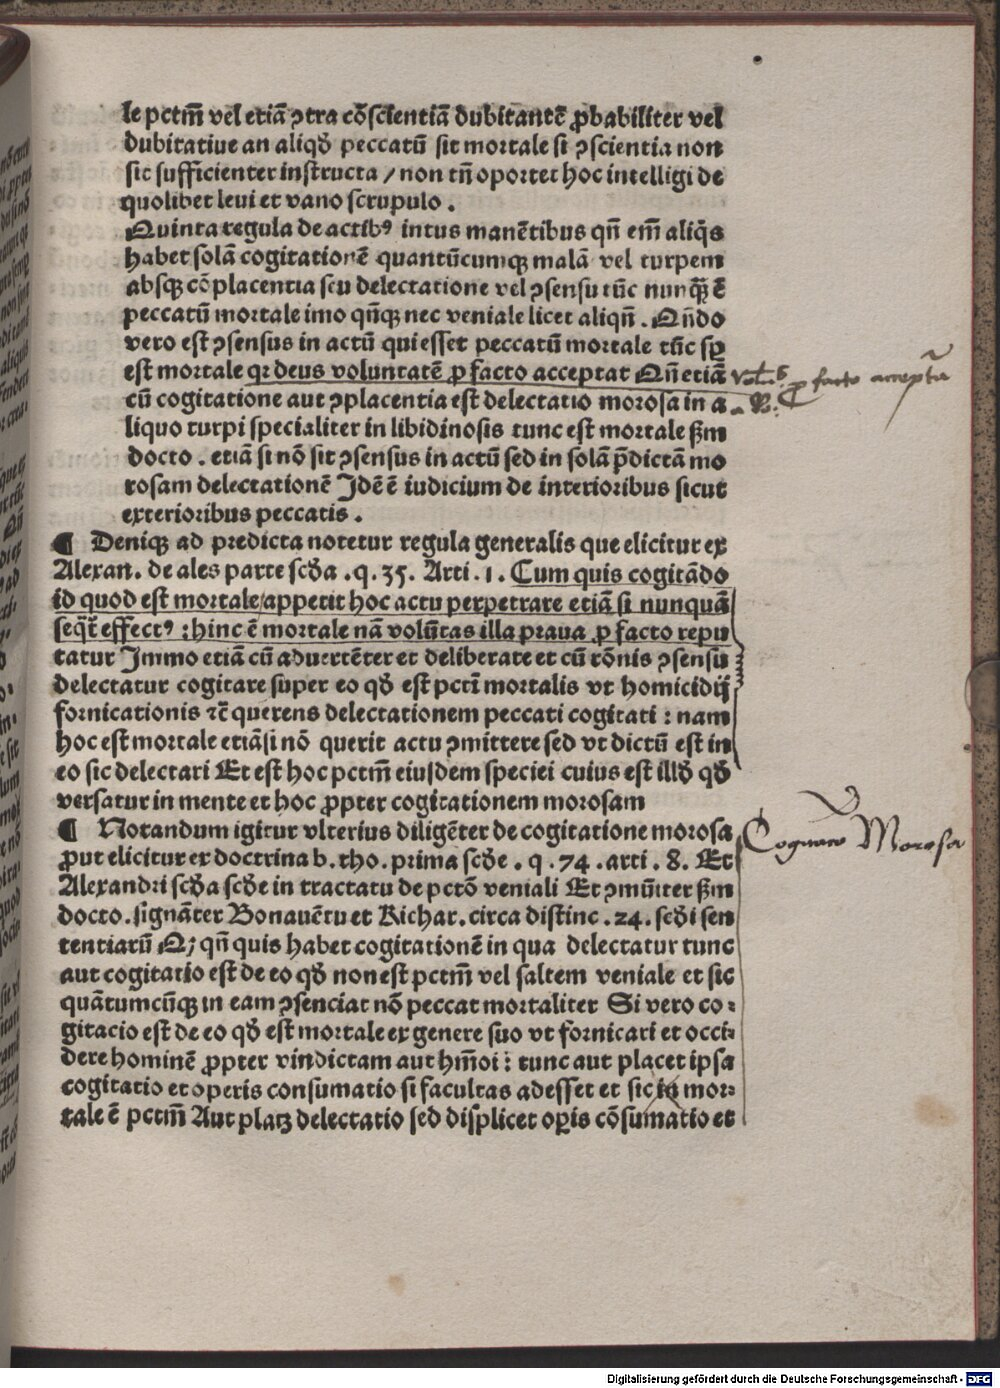 le pctm̄ vel etiā ꝯtra cōscientiā dubitantē ꝓbabiliter vel
dubitatiue an aliqd̕ peccatū sit mortale si ꝯscientia non
sit sufficienter instructa / non tn̄ oportet hoc intelligi de
quolibet leui et vano scrupulo .
Quinta regula de actibꝰ intus manētibus qn̄ em̄ aliq̄s
habet solā cogitationē quantūcumqꝫ malā vel turpem
absqꝫ cōplacentia seu delectatione vel ꝯsensu tūc nunq̄ꝫ ē
peccatū mortale imo qn̄qꝫ nec veniale licet aliqn̄ . Qn̄do
vero est ꝯsensus in actū qui esset peccatū mortale tūc sꝑ
est mortale qꝛ deus voluntatē ꝓ facto acceptat Qn̄ etiā
cū cogitatione aut ꝯplacentia est delectatio morosa in a
liquo turpi specialiter in libidinosis tunc est mortale ẜm
docto . etiā si nō sit ꝯsensus in actū sed in solā p̄dictā mo
rosam delectationē Idē ē iudicium de interioribus sicut
exterioribus peccatis .
¶ Deniqꝫ ad predicta notetur regula generalis que elicitur ex
Alexan. de ales parte scd̕a .q. 35. Arti .1. Cum quis cogitādo
id quod est mortale/appetit hoc actu perpetrare etiā si nunquā
seq̄t̄ effectꝰ : hinc ē mortale nā volūtas illa praua ꝓ facto repu
tatur Immo etiā cū aduertēter et deliberate et cū rōnis ꝯsensu
delectatur cogitare super eo qd̕ est pctī mortalis vt homicidij
fornicationis ⁊c̄ querens delectationem peccati cogitati : nam
hoc est mortale etiāsi nō querit actu ꝯmittere sed vt dictū est in
eo sic delectari Et est hoc pctm̄ eiusdem speciei cuius est illd̕ qd̕
versatur in mente et hoc ꝓpter cogitationem morosam
¶ Notandum igitur vlterius diligēter de cogitatione morosa
ꝓut elicitur ex doctrina b. tho. prima scd̕e . q . 74 . arti . 8. Et
Alexandri scd̕a scd̕e in tractatu de pctō veniali Et ꝯmūiter ẜm
docto. signāter Bonauētu et Richar. circa distinc . 24. scd̕i sen
tentiarū Qꝫ qn̄ quis habet cogitationē in qua delectatur tunc
aut cogitatio est de eo qd̕ non est pctm̄ vel saltem veniale et sic
quātumcūqꝫ in eam ꝯsenciat nō peccat mortaliter Si vero co⸗
gitacio est de eo qd̕ est mortale ex genere suo vt fornicari et occi⸗
dere hominē ꝓpter vindictam aut hm̄oi : tunc aut placet ipsa
cogitatio et operis consumatio si facultas adesset et sic id mor⸗
tale ē pctm̄ Aut platꝫ delectatio sed displicet oꝑis cōsumatio et
ꝓ facto accepta
Cogitatio Morosa
Digitalisierung gefördert durch die Deutsche Forschungsgemeinschaft - DFG